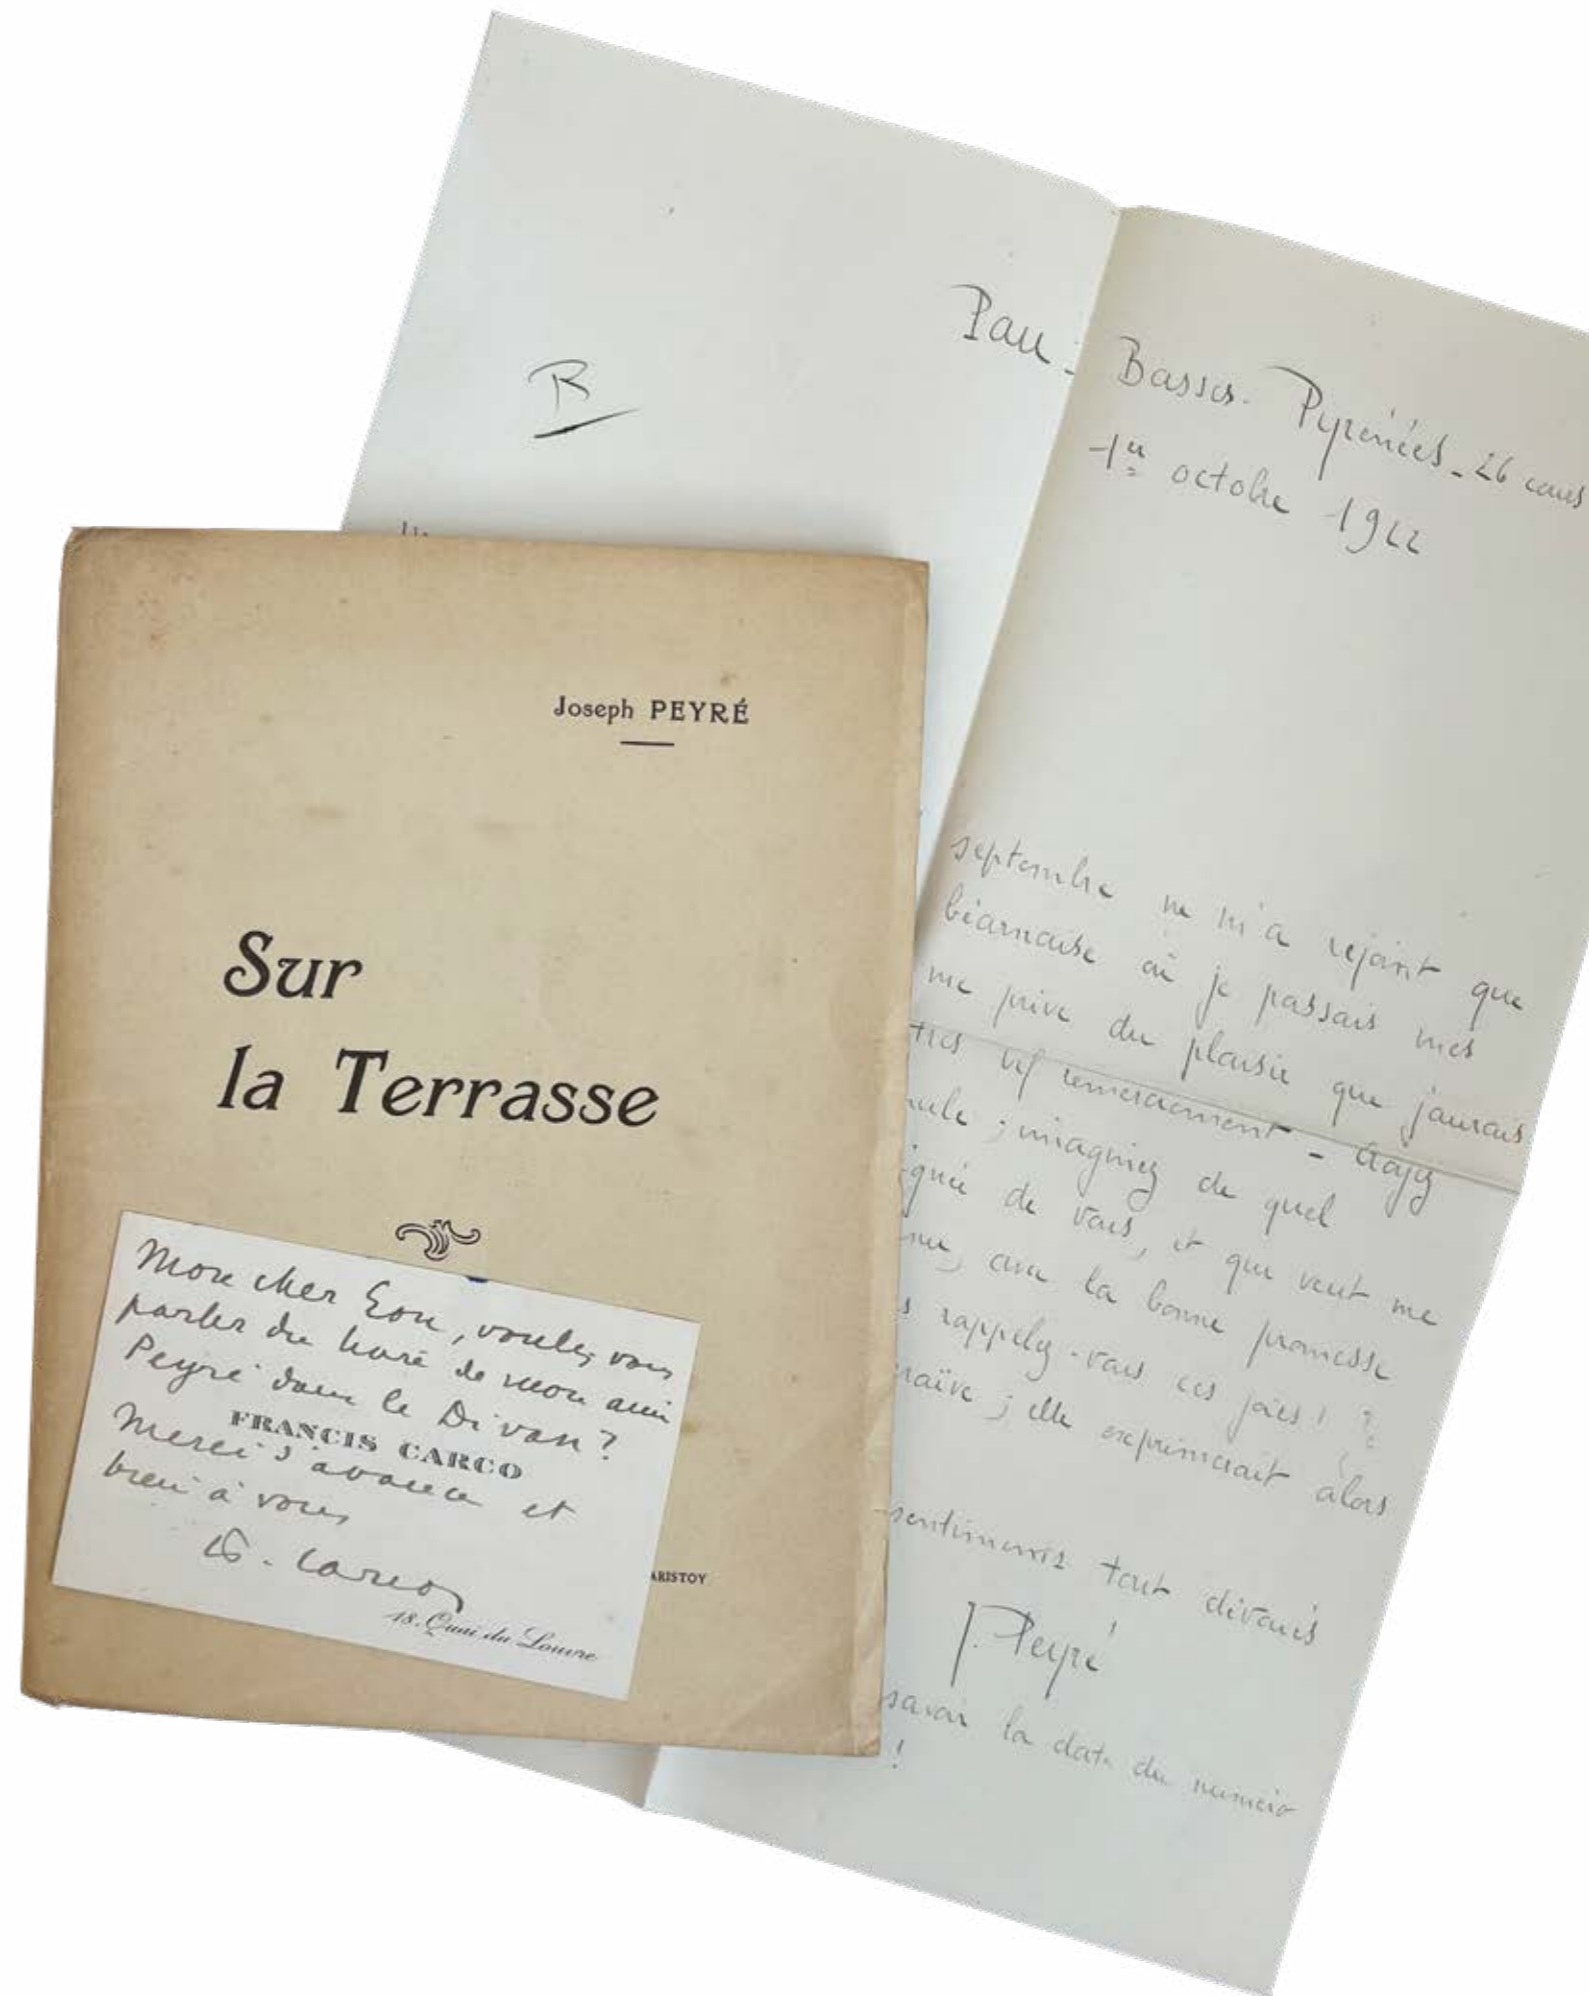 Pau - Basses-Pyrénées - 26 cours
1er octobre 1922
B
septembre ne m'a rejoint que
béarnaise où je passais mes
me prive du plaisir que j'aurais
très vif remerciement - Ayez
; imaginez de quel
de vous, et qui veut me
, avec la bonne promesse
rappelez-vous ces joies ! ?
naïve ; elle exprimerait alors
sentiments tout dévoués
J. Peyré
savoir la date du numéro
!
Joseph PEYRÉ
Sur
la Terrasse
ARISTOY
Mon cher Eon, voulez vous
parler du livre de mon ami
Peyré dans le Divan ?
FRANCIS CARCO
Merci d'avance et
bien à vous
F. Carco
18. Quai du Louvre